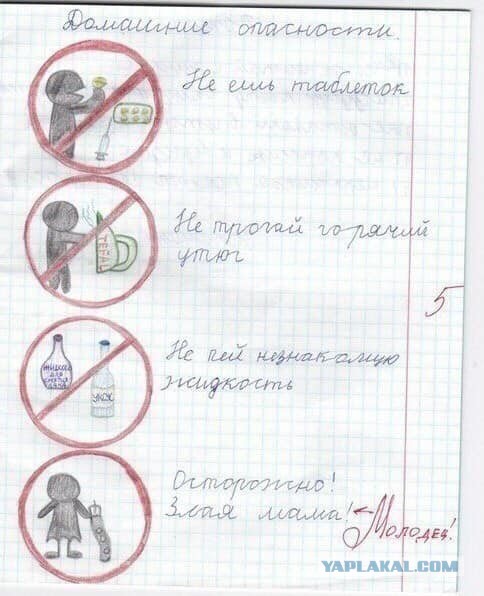 Домашние опасности.
Не ешь таблеток
Не трогай горячий
утюг
TEFAL
5
Не пей незнакомую
жидкость
для
Осторожно!
Злая мама!
Молодец!
YAPLAKAL.COM